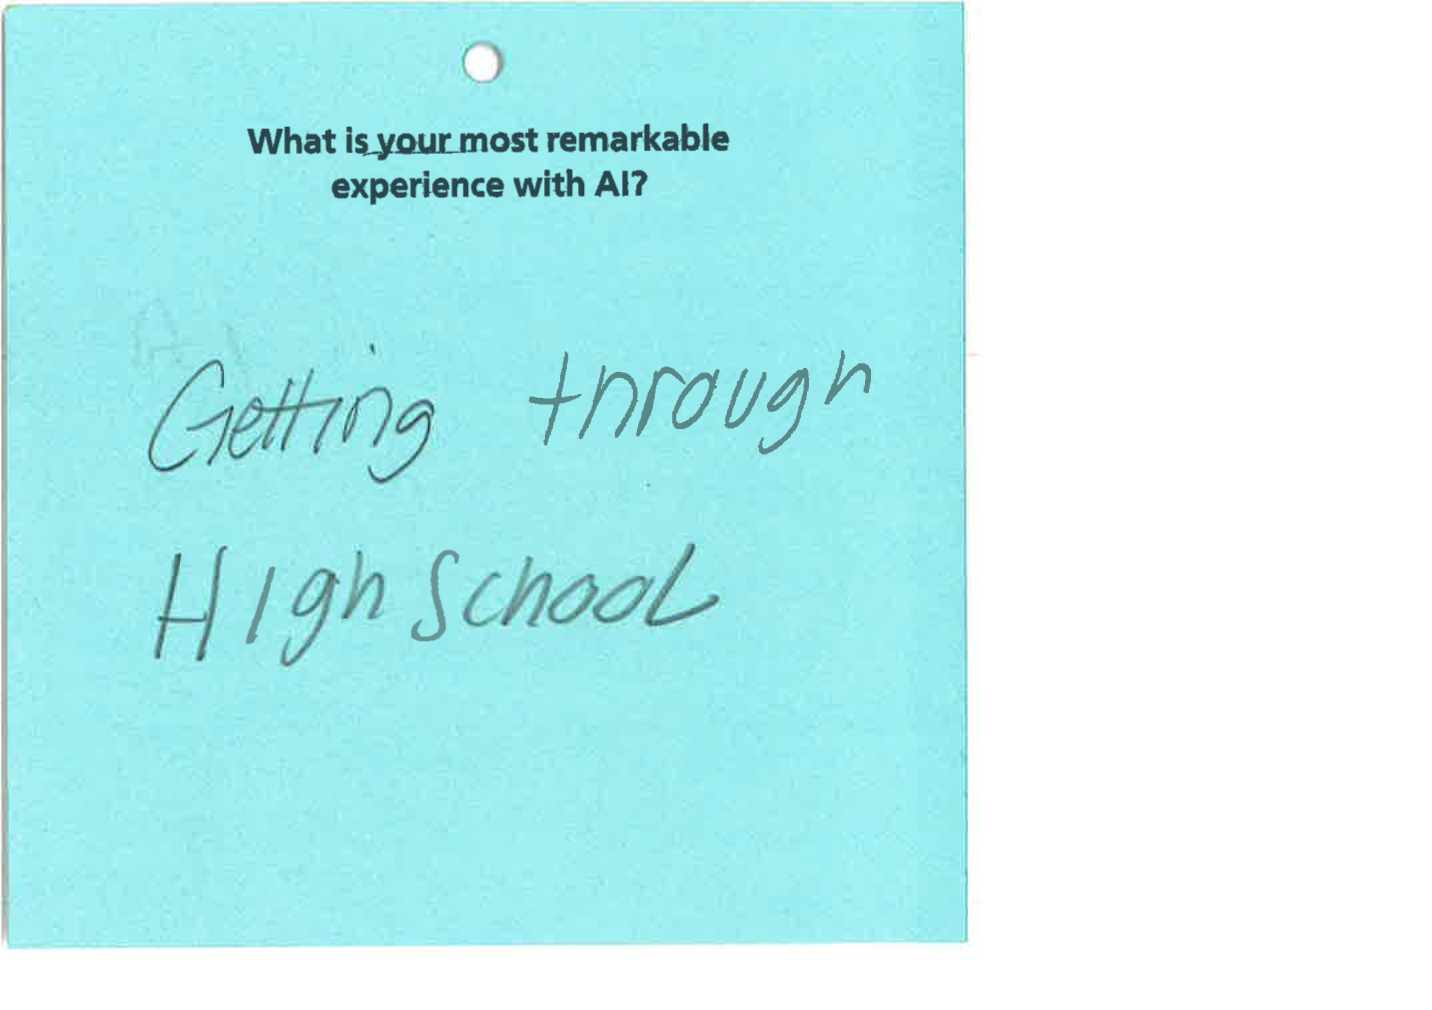 What is your most remarkable
experience with AI?
Getting through
High School